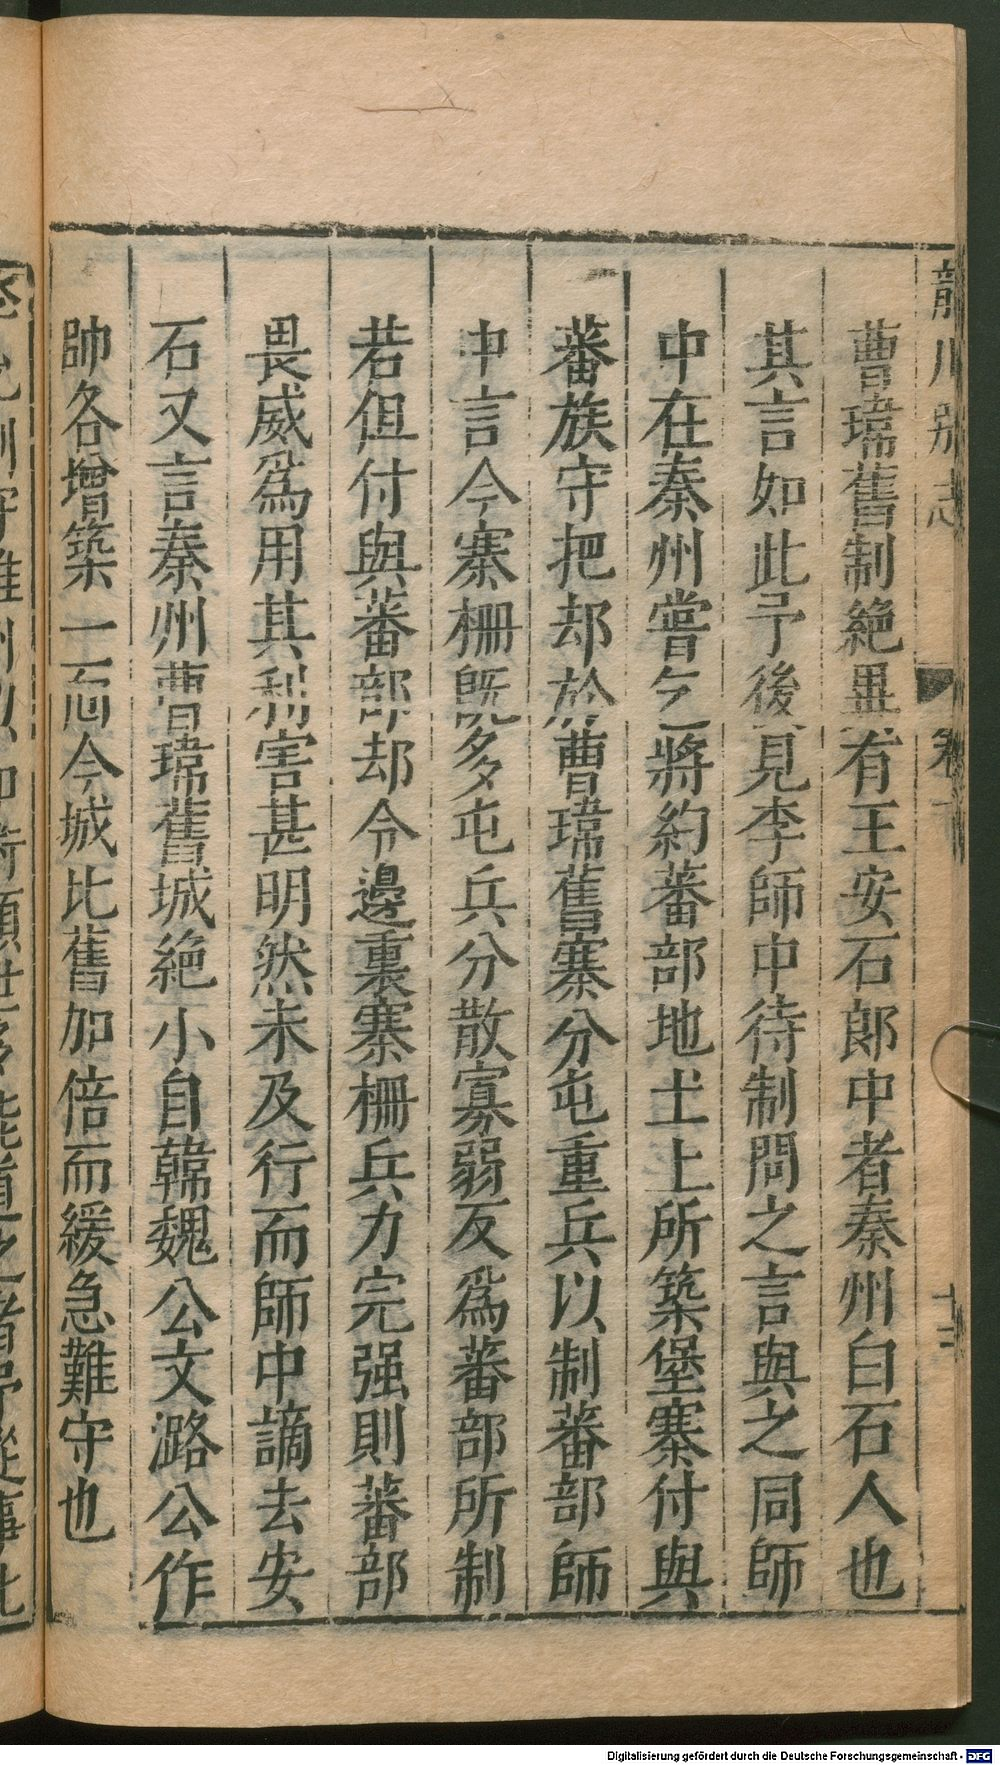 龍川別志 卷下 十三
曹瑋舊制絕異有王安石郎中者秦州白石人也
其言如此予後見李師中待制問之言與之同師
中在秦州嘗乞將約蕃部地土上所築堡寨付與
蕃族守把却於曹瑋舊寨分屯重兵以制蕃部師
中言今寨柵既多屯兵分散寡弱反爲蕃部所制
若但付與蕃部却令邊裏寨柵兵力完强則蕃部
畏威爲用其利害甚明然未及行而師中謫去安
石又言秦州曹瑋舊城絕小自韓魏公文潞公作
帥各增築一面今城比舊加倍而緩急難守也
Digitalisierung gefördert durch die Deutsche Forschungsgemeinschaft - DFG